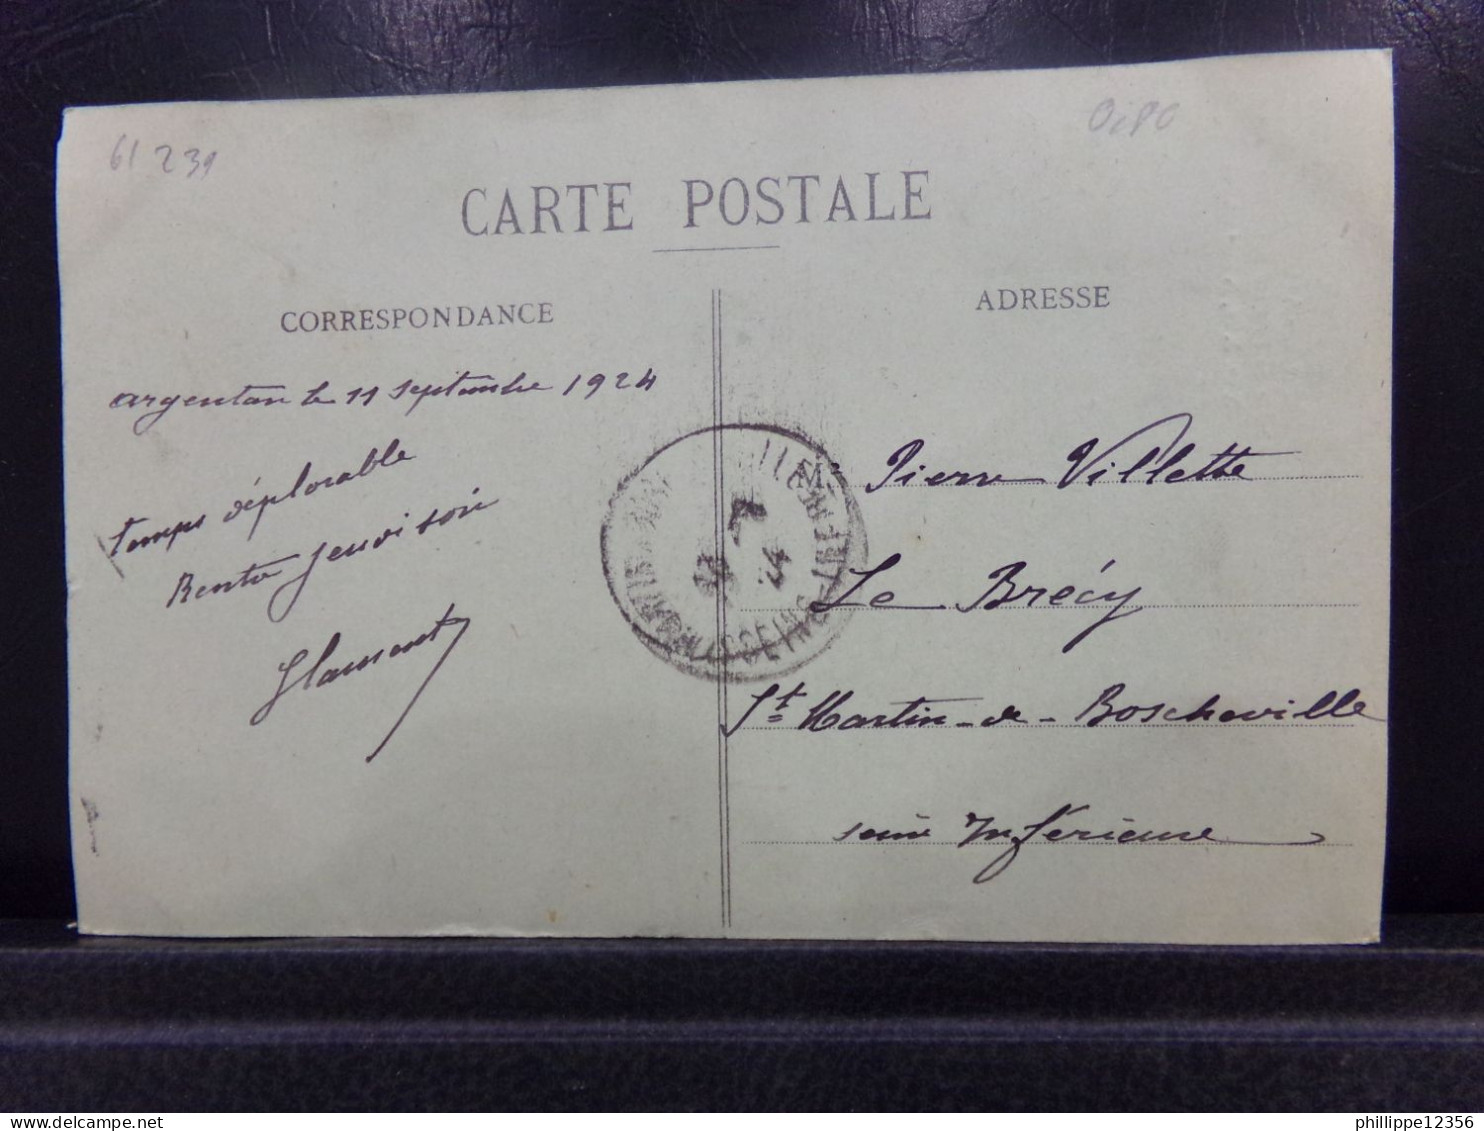 61 239
CARTE POSTALE
CORRESPONDANCE
ADRESSE
argentan le 11 septembre 1924
temps déplorable
Rentre jeudi soir
Pierre Villette
Le Brécy
St Martin-de-Boscheville
seine Inférieure
phillippe12356